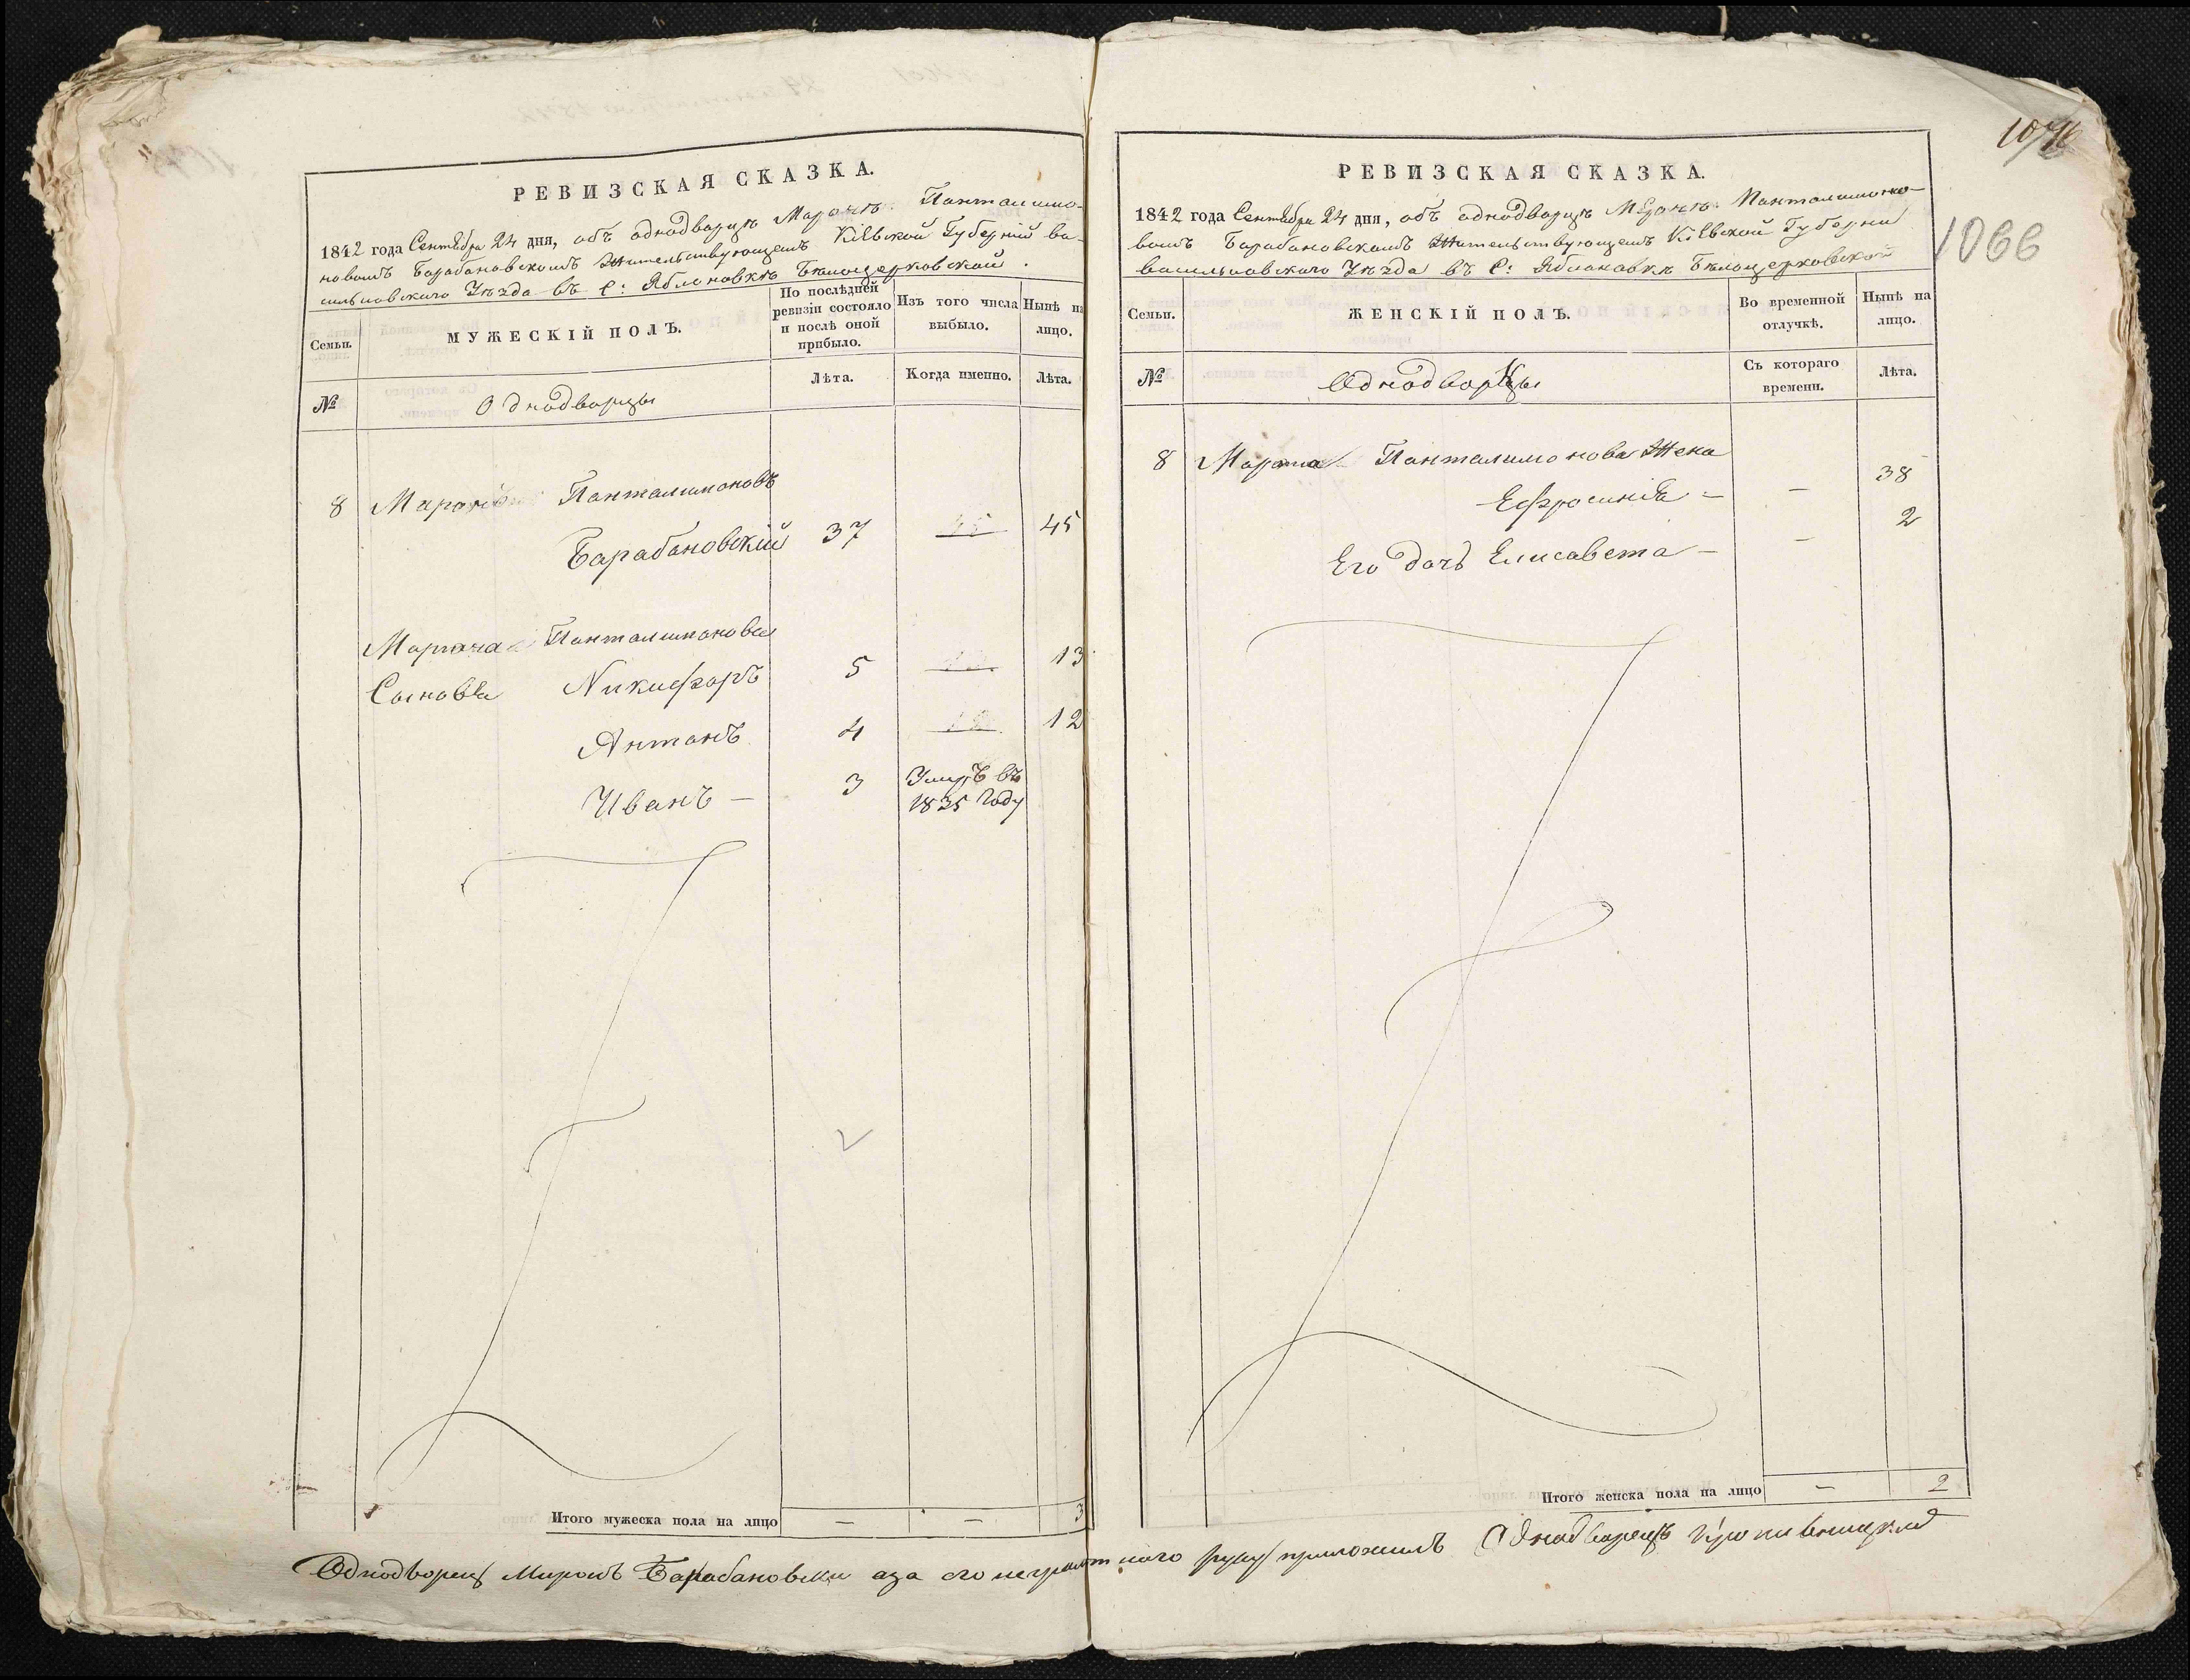 РЕВИЗСКАЯ СКАЗКА.
1842 года Сентября 24 дня, объ однодворцѣ Маронѣ Панталимо-
новомъ Барабановскомъ Жительствующемъ Кіевской Губерніи ва-
сильковскаго Уѣзда въ с: Яблоновкѣ Бѣлоцерковской.
Семьи. МУЖЕСКІЙ ПОЛЪ. По послѣдней ревизіи состояло и послѣ оной прибыло. Изъ того числа выбыло. Нынѣ на лицо.
№ Однодворцы Лѣта. Когда именно. Лѣта.
8 Маронъ Панталимоновъ
Барабановскій 37 45
Панталимонова
Сыновья Никифоръ 5 13
Антонъ 4 12
Иванъ — 3 Умеръ въ
1835 году
Итого мужеска пола на лицо — — 3
1076
1066
РЕВИЗСКАЯ СКАЗКА.
1842 года Сентября 24 дня, объ однодворцѣ Панталимоно-
вомъ Барабановскомъ Жительствующемъ Кіевской Губерніи
васильковскаго Уѣзда въ с: Яблоновкѣ Бѣлоцерковской
Семьи. ЖЕНСКІЙ ПОЛЪ. Во временной отлучкѣ. Нынѣ на лицо.
№ Однодворцы Съ котораго времени. Лѣта.
8 Марона Панталимонова Жена
Ефросинія — — 38
Его дочь Елисавета — — 2
Итого женска пола на лицо — 2
Однодворец Миронъ Барабановски аза его неграмотного руку приложилъ Однодворецъ